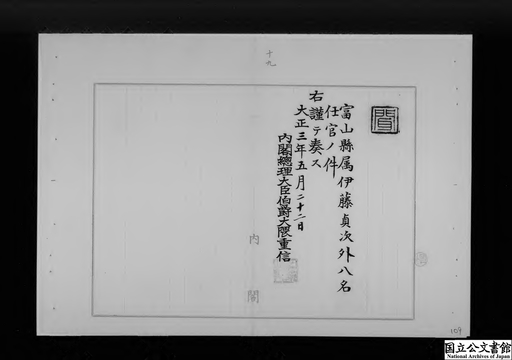 十九
聞
富山縣属伊藤貞次外八名
任官ノ件
右謹テ奏ス
大正三年五月二十二日
内閣總理大臣伯爵大隈重信
内閣
109
国立公文書館
National Archives of Japan